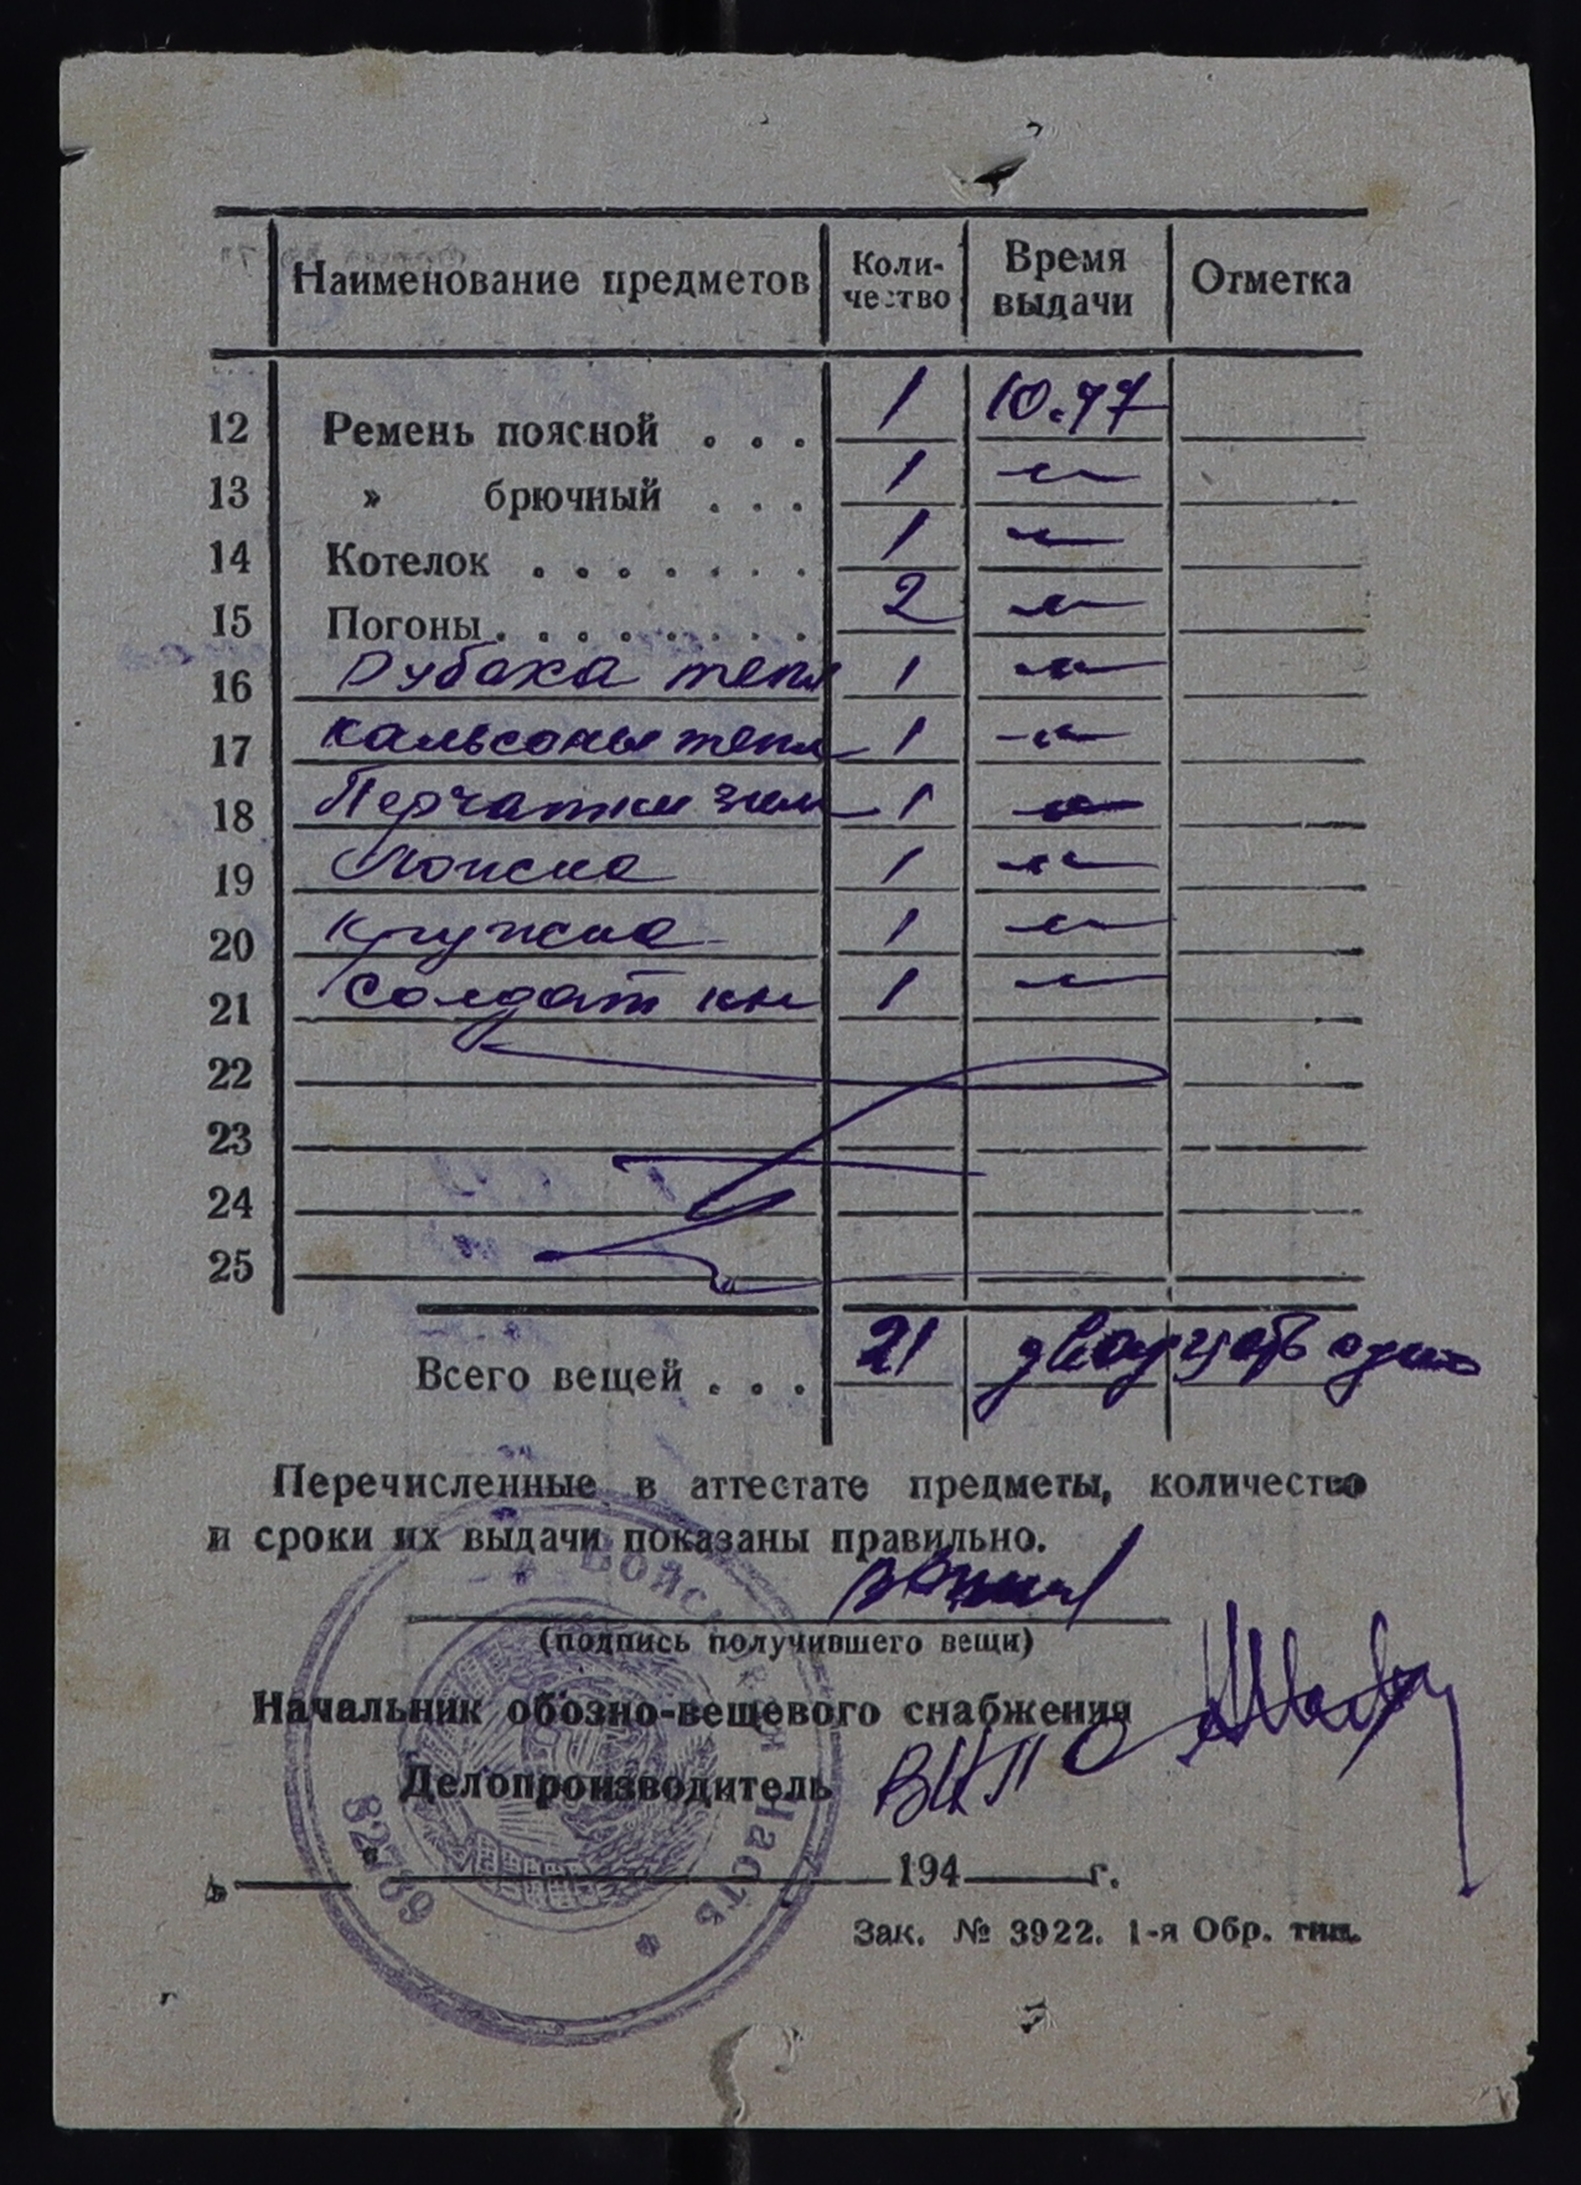 Наименование предметов Коли-чество Время выдачи Отметка
12 Ремень поясной . . . 1 10.47
13 » брючный . . . 1 —"—
14 Котелок . . . . . . . 1 —"—
15 Погоны . . . . . . . . 2 —"—
16 Рубаха тепл 1 —"—
17 Кальсоны тепл 1 —"—
18 Перчатки зим 1 —"—
19 Ложка 1 —"—
20 Кружка 1 —"—
21 Солдат кн 1 —"—
22
23
24
25
Всего вещей . . . 21 двадцать один
Перечисленные в аттестате предметы, количество
и сроки их выдачи показаны правильно.
(подпись получившего вещи)
Начальник обозно-вещевого снабжения
Делопроизводитель
" 194 г.
Зак. № 3922. 1-я Обр. тип.
* Войсковая часть *
82739